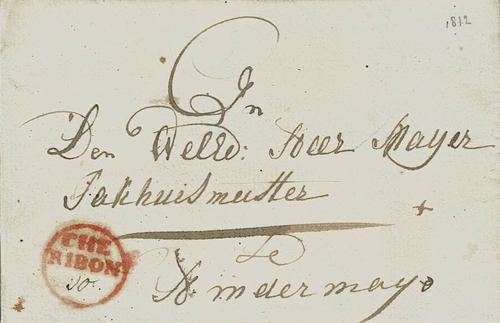 1812
An
Den Welld: Heer Mayer
Pakhuismeester
te
Indermayo
CHE
RIBON
10.